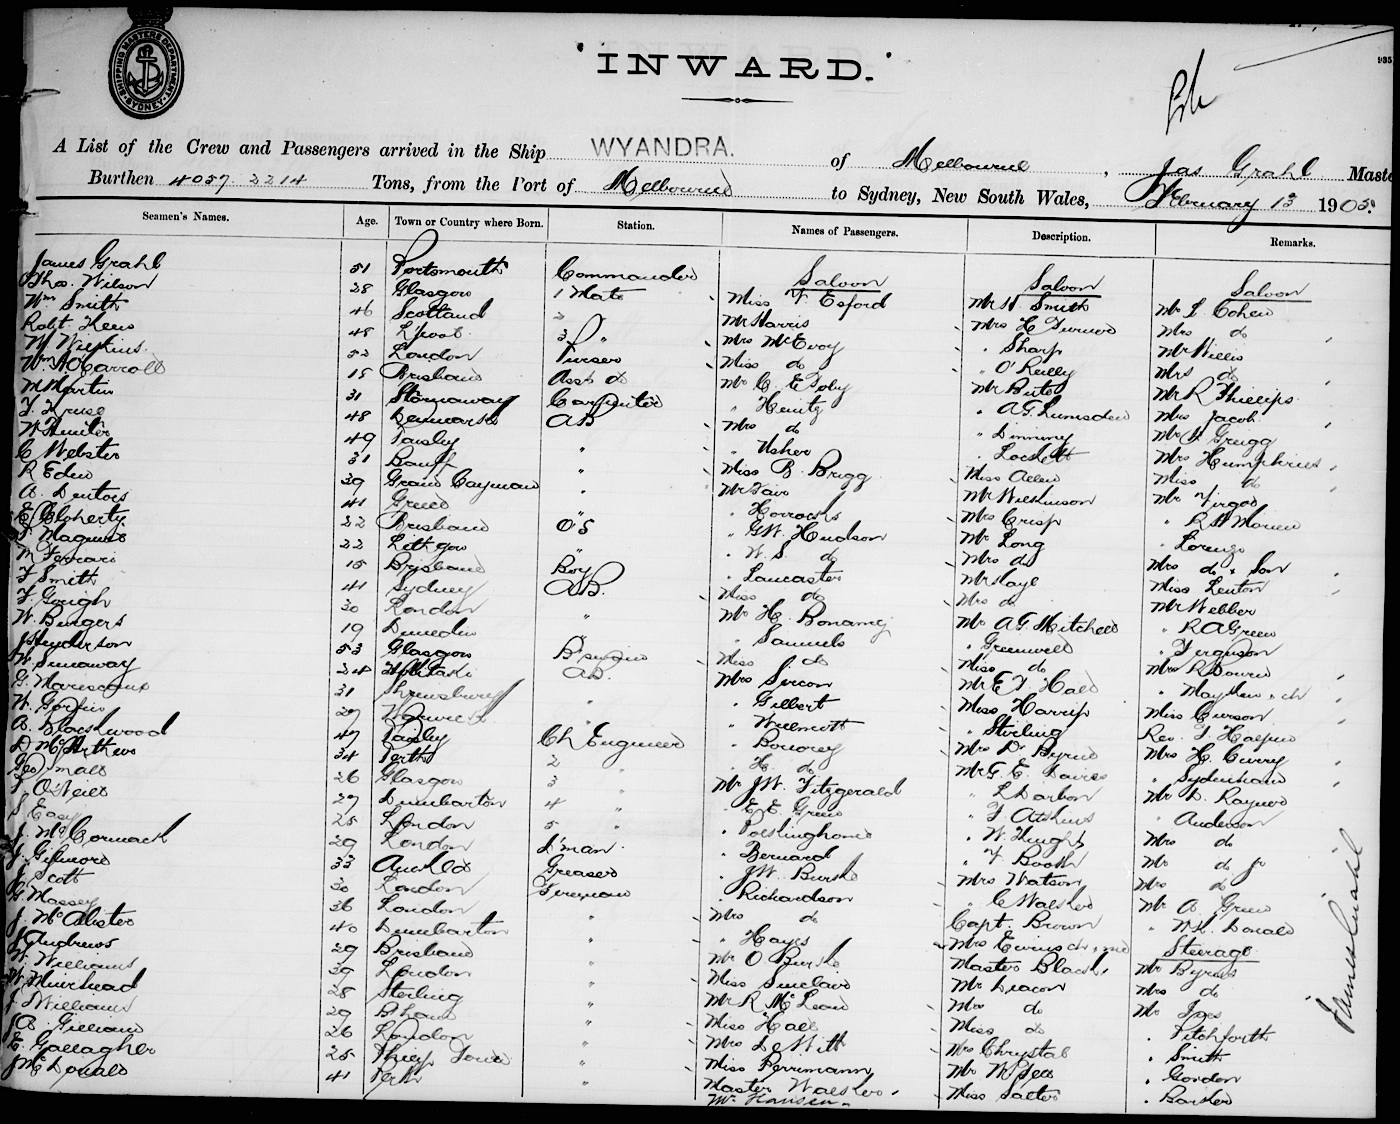 SHIPPING MASTERS DEPARTMENT SYDNEY
INWARD.
935
A List of the Crew and Passengers arrived in the Ship WYANDRA. of Melbourne, Jas Grahl Maste
Burthen 4057. 2214 Tons, from the Port of Melbourne to Sydney, New South Wales, February 13 1905.
Seamen's Names. Age. Town or Country where Born. Station. Names of Passengers. Description. Remarks.
James Grahl 51 Portsmouth Commander
Thos. Wilson 28 Glasgow 1 Mate
Wm Smith 46 Scotland 2 "
Robt Keers 48 L'pool 3 "
W Wilkins. 52 London Purser
Wm H Carroll 15 Brisbane Asst do
M Martin 31 Stornoway Carpenter
F. Kruse 48 Denmark AB
W Hunter 49 Paisley "
C Webster 31 Banff "
R Eden 39 Grand Cayman "
A. Dentoes 41 Greece "
E. Cloherty 22 Brisbane OS
Maguire 22 Lithgow "
M Ferrari 15 Brisbane Boy
F Smith 41 Sydney AB.
F. Gough 30 London "
W. Burgers 19 Dunedin "
J Henderson 53 Glasgow
W. Sunaway 24 Hokitaki AB.
G. Mariscaux 31 Shrewsbury "
W. Gorfin 29 Warwick "
A. Blackwood 47 Paisley Ch Engineer
D McArthur 34 Perth 2 "
Geo Small 26 Glasgow 3 "
F. O'Neill 29 Dumbarton 4 "
S Easy 25 London 5 "
J. McCormack 29 London D'man.
J. Gilmore 33 Auckld Greaser
J. Scott 30 London Fireman
G Massey 36 London "
J. McAlister 40 Dumbarton "
J Andrews 29 Brisbane "
W. Williams 39 London "
W. Muirhead 28 Sterling "
J Williams 29 "
A. Gilliard 26 London "
E. Gallagher 25 "
J McDonald 41 Perth "
Saloon
Miss F. Esford
Mr Harris
Mrs McEvoy
Miss do
Mr C. E Toby
" Heintz
Mrs do
" Usher
Miss B. Brigg
Mr Fair
" Horrocks
" GW. Hudson
" W. S do
" Lancaster
Miss do
Mr H. Bonamy
" Samuels
Miss do
Mrs Sircon
" Gilbert
" Willmott
"
" H. do
Mr JW. Fitzgerald
" E. E. Green
"
" Bernard
" JW. Burke
" Richardson
Mrs do
" Hayes
Mr O Burke
Miss Sinclair
Mr R McLean
Miss Hall
Mrs DeWitt
Miss Perrimann
Master Walsher
Mr Hansen
Saloon
Mr H Smith
Mrs H. Turner
" Sharp
" O'Reilly
Mr Bute
" A G Lumsden
" Dinning
" Lockett
Miss Allen
Mr Wilkinson
Mrs Crisp
Mr Long
Mrs do
Mr Gaye
Mrs do
Mr A G Mitchell
" Greenwell
Miss do
Mr E F Hall
Miss Harrip
" Stirling
Mrs Dr Byrne
Mr G. E. Davies
" L Darbon
" F. Atkins
" W. Hught
" F Booth
Mrs Watson
" C Walsher
Capt. Brown
Mrs
Master Black
Mr Deacon
Mrs do
Miss do
Mrs Chrystal
Mr
Miss Salter
Saloon
Mr L Cohen
Mrs do
Mr Willis
Mrs do
Mr R Phillips
Mrs Jacob
Mr Grugg
Mrs Humphries
Miss do
Mr Firgoe
" R H Moren
" Lorenzo
Mrs do & Son
Miss Lenton
Mr Webber
" R A Green
" Ferguson
Mrs R Bourne
" Mayhew & ch
Miss Curson
Rev. F. Halpin
Mrs H. Curry
" Sydenham
Mr D. Rayner
" Anderson
Mrs do
Mr do Jr
Mrs do
Mr A Green
" W. H. Donald
Steerage
Mr Byrnes
Mrs do
Mr
" Pitchforth
" Smith
" Gordon
" Barker
James Grahl